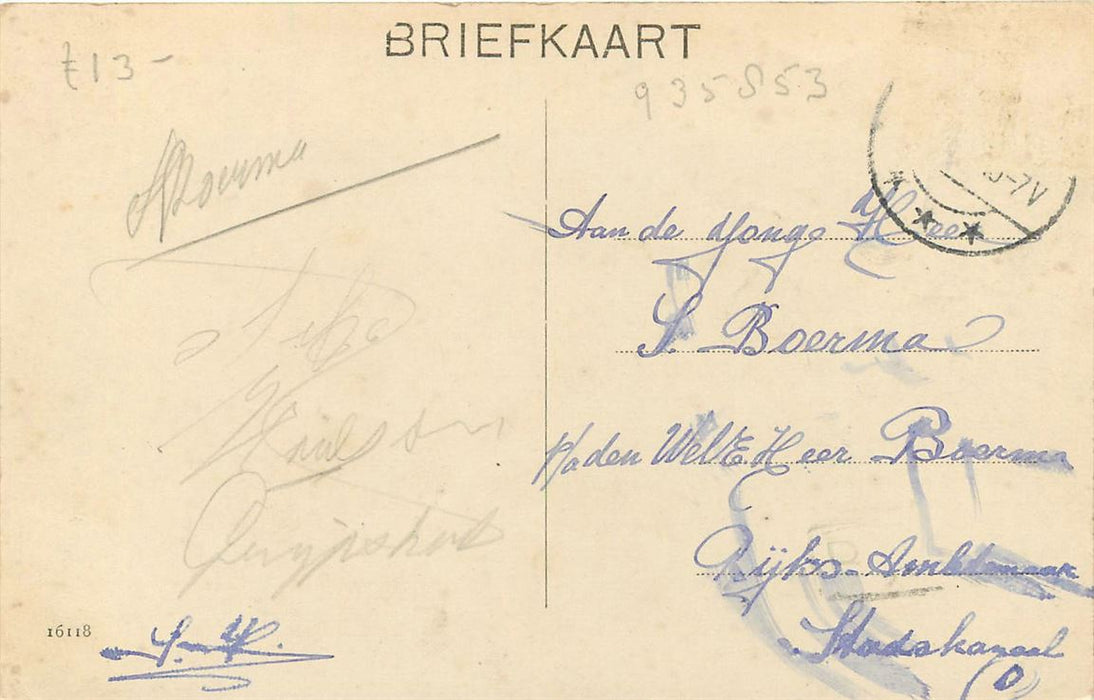 BRIEFKAART
£13-
935853
Boerma
10-7V
Aan de Jonge Heer
S. Boerma
p/a den WelE. Heer Boerma
Rijks-Ambtenaar
Stadskanaal
16118
S.-K.